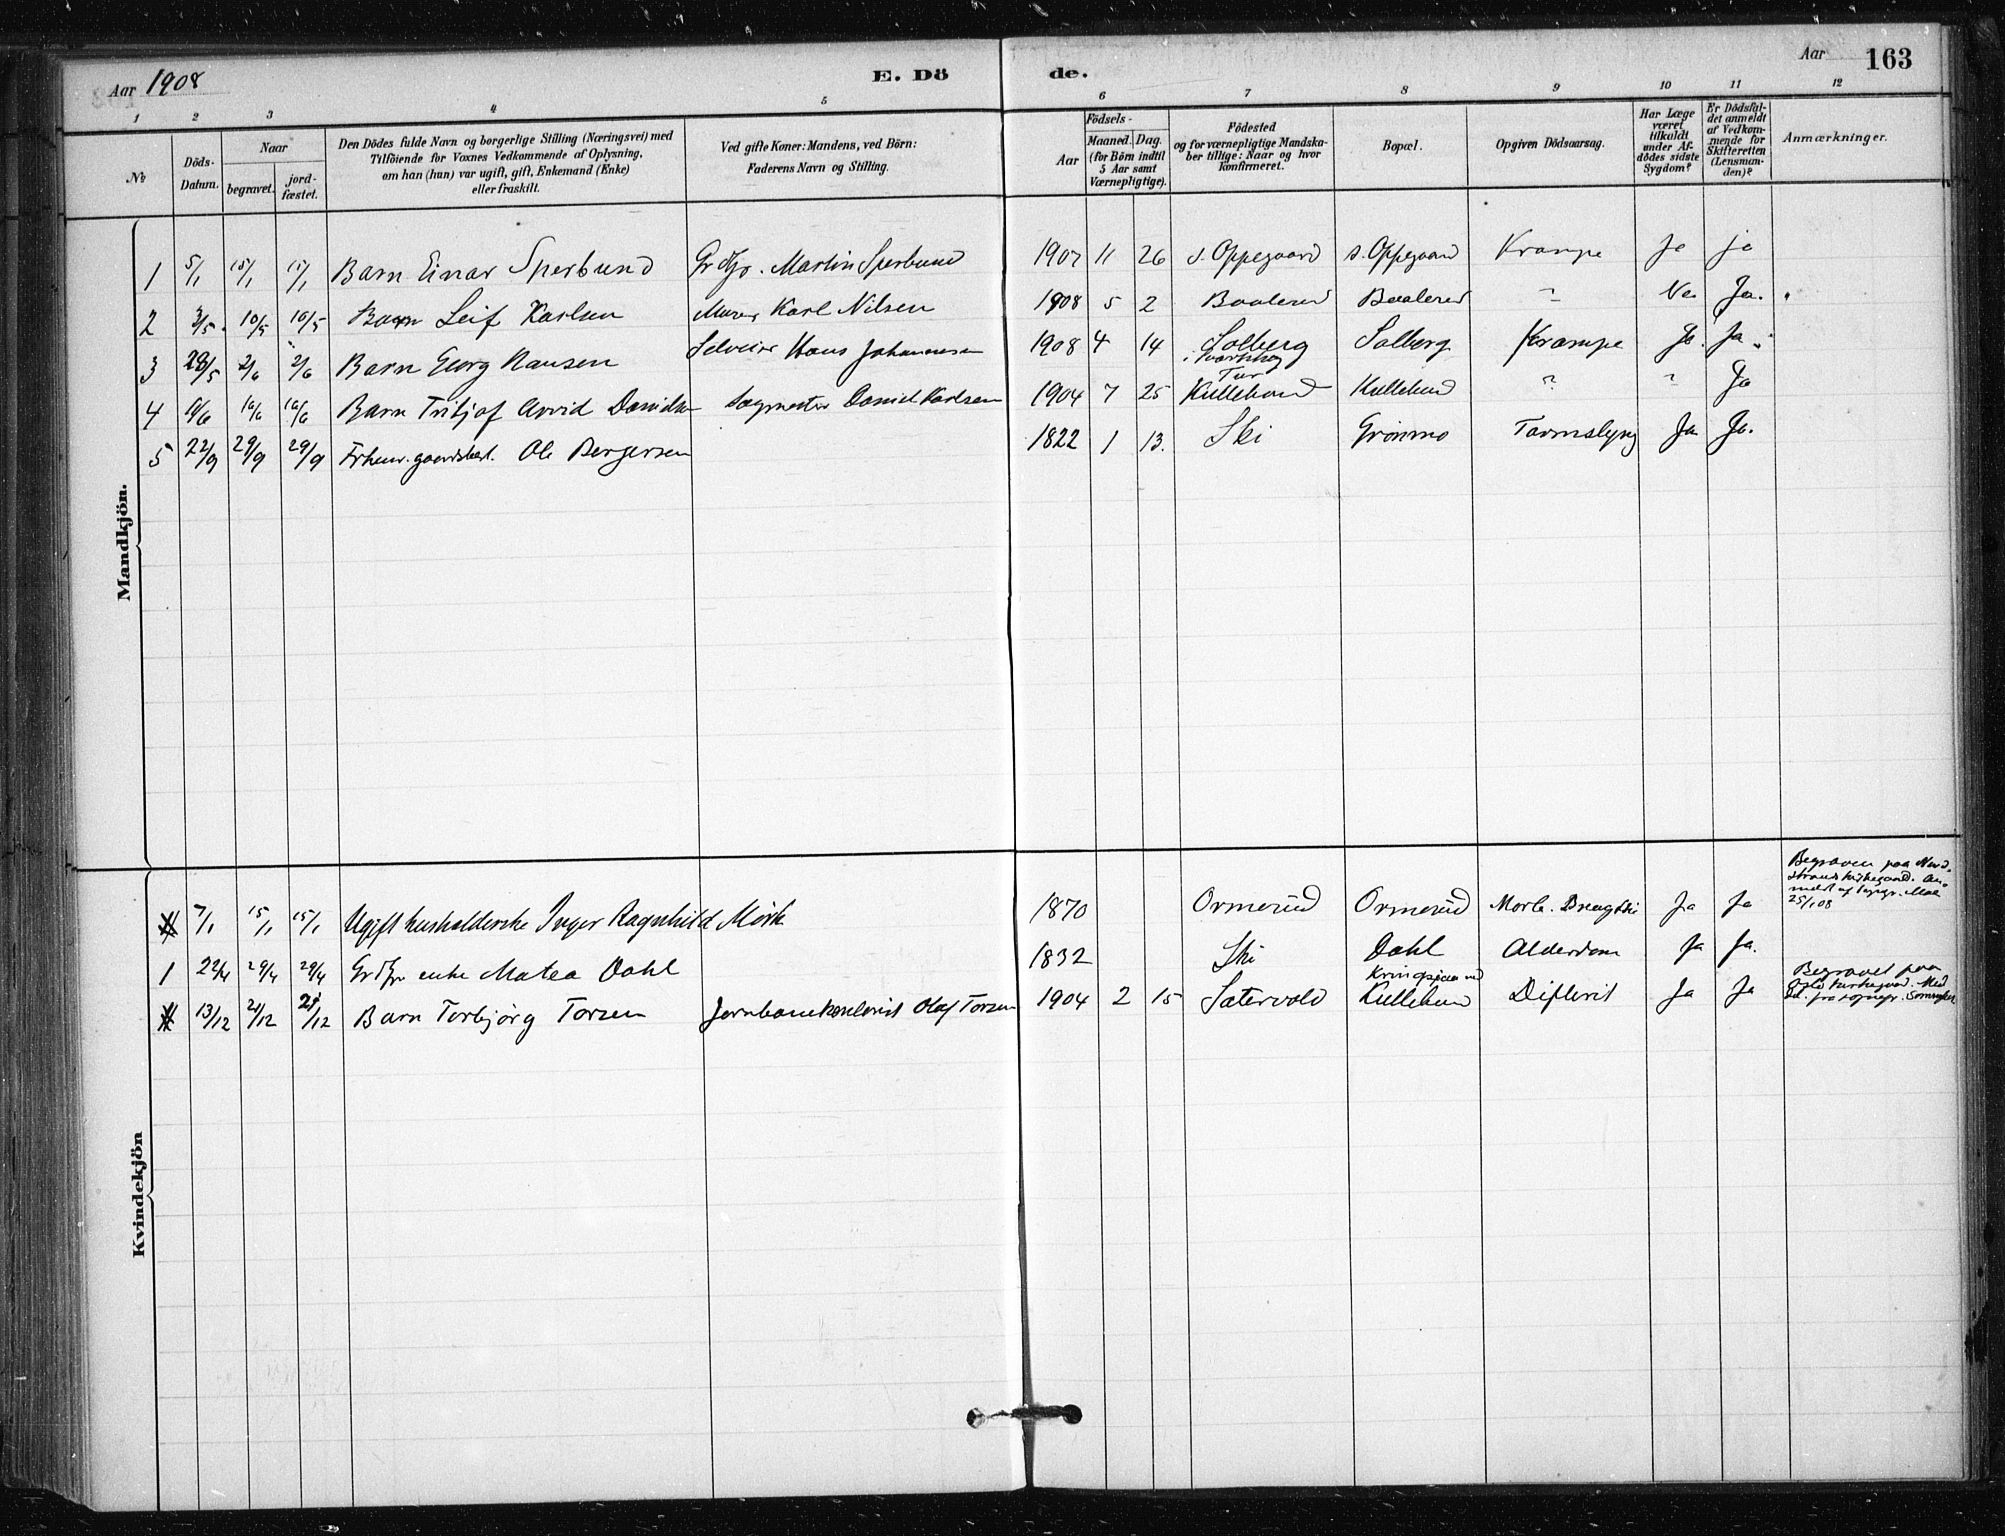 Aar 1908
E. Dö
de.
Aar
163
1 2 3 4 5 6 7 8 9 10 11 12
№
Döds-
Datum.
Naar
begravet.
jord-
fæstet.
Den Dödes fulde Navn og borgerlige Stilling (Næringsvei) med
Tilföiende for Voxnes Vedkommende af Oplysning,
om han (hun) var ugift, gift, Enkemand (Enke)
eller fraskilt.
Ved gifte Koner: Mandens, ved Börn:
Faderens Navn og Stilling.
Födsels-
Aar
Maaned.
Dag.
(for Börn indtil
5 Aar samt
Værnepligtige).
Födested
og for værnepligtige Mandska-
ber tillige: Naar og hvor
konfirmeret.
Bopæl.
Opgiven Dödsaarsag.
Har Læge
været
tilkaldt
under Af-
dödes sidste
Sygdom?
Er Dödsfal-
det anmeldt
af Vedkom-
mende for
Skifteretten
(Lensman-
den)?
Anmærkninger.
Mandkjön.
1 5/1 15/1 15/1 Barn Einar Sperbund Martin Sperbund 1907 11 26 s. Oppegaard s. Oppegaard Krampe Ja ja
2 3/5 10/5 10/5 Barn Leif Karlsen Murer Karl Nilsen 1908 5 2 Baalerud Baalerud " Nei Ja.
3 28/5 2/6 2/6 Barn Georg Hansen Selveier Hans Johannesen 1908 4 14 Solberg Solberg Krampe Ja. Ja
4 9/6 16/6 16/6 Barn Tritjof Arvid Davidsen Sagmester David Karlsen 1904 7 25 Kullebund Kullebund " " Ja
5 22/9 29/9 29/9 Forhenv. gaardbest. Ole Bergersen 1822 1 13. Ski Grönmo Tarmslyng Ja Ja.
Kvindekjön
7/1 15/1 15/1 Ugift husholderske Inger Ragnhild Mörk 1870 Ormerud Ormerud Morb. Brightii Ja Ja
Begraven paa Nord-
strand kirkegaard. An-
meldt af sognepr.
25/1 08
1 22/4 29/4 29/4 enke Matea Dahl 1832 Ski Dahl Alderdom Ja Ja.
13/12 21/12 21/12 Barn Torbjörg Torsen Olaf Torsen 1904 2 15 Sætervold
Kullebund Difterit Ja Ja
Begravet paa
Oslo kirkegaard. Med